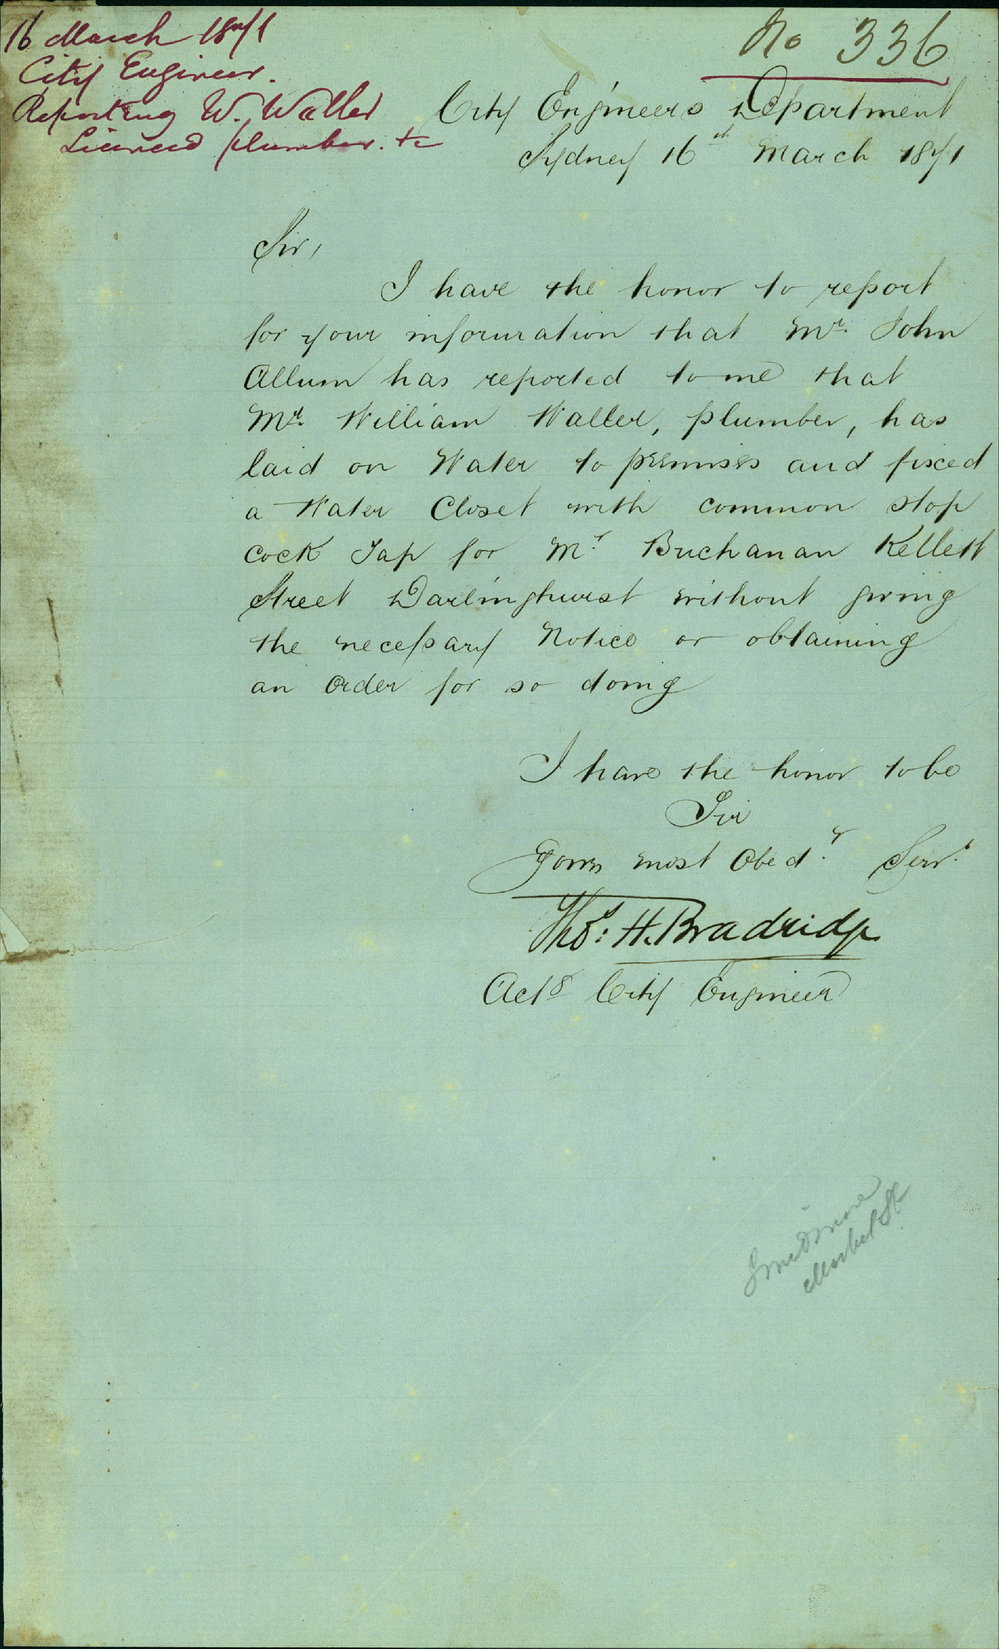 16 March 1871
City Engineer.
Reporting W. Waller
Licenced plumber. &c
No 336
City Engineers Department
Sydney 16th March 1871
Sir,
I have the honor to report
for your information that Mr. John
Allum has reported to me that
Mr. William Waller, plumber, has
laid on Water to premises and fixed
a Water Closet with common stop
cock Tap for Mr. Buchanan Kellett
Street Darlinghurst without giving
the necessary Notice or obtaining
an Order for so doing
I have the honor to be
Sir
Yours most Obedt. Servt.
Thos: H. Bradridge
Actg City Engineer
Smidmore
Market St